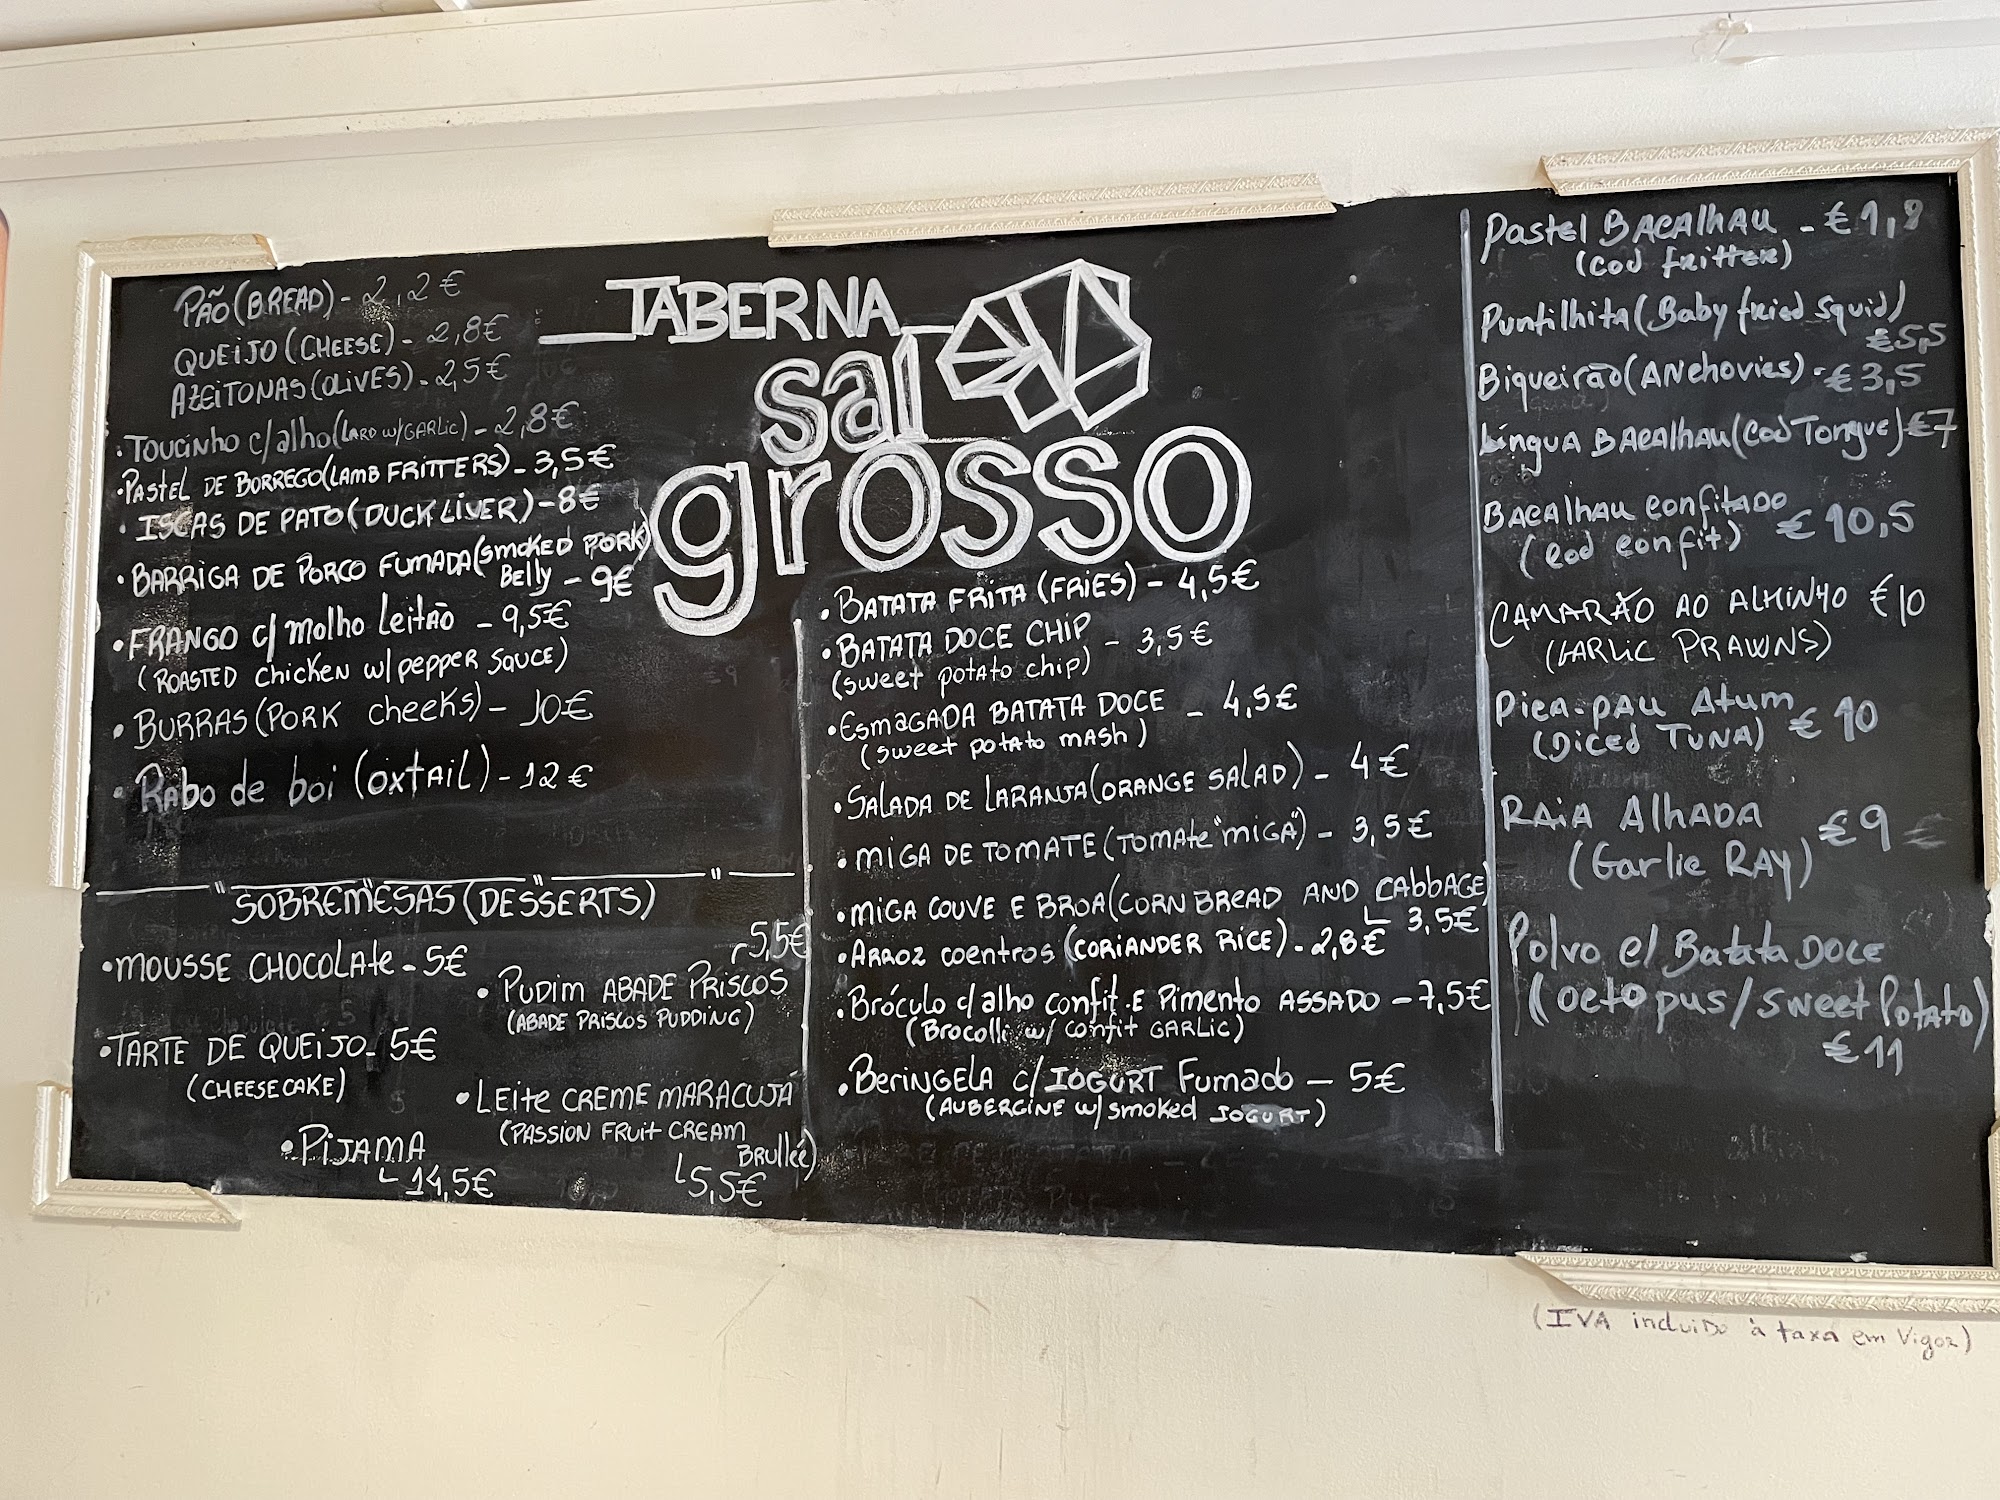 TABERNA
sal
grosso
PÃO (BREAD) - 2,2€
QUEIJO (CHEESE) - 2,8€
AZEITONAS (OLIVES) - 2,5€
• TOUCINHO c/alho (LARD w/GARLIC) - 2,8€
• PASTEL DE BORREGO (LAMB FRITTERS) - 3,5€
• ISCAS DE PATO (DUCK LIVER) - 8€
• BARRIGA DE PORCO FUMADA (SMOKED PORK
Belly - 9€
• FRANGO c/ molho Leitão - 9,5€
(ROASTED chicken w/ pepper SAUCE)
• BURRAS (PORK cheeks) - 10€
• Rabo de boi (oxtail) - 12€
"SOBREMESAS (DESSERTS)
• MOUSSE CHOCOLATE - 5€
• TARTE DE QUEIJO - 5€
(CHEESECAKE)
• PIJAMA
14,5€
5,5€
• PUDIM ABADE PRISCOS
(ABADE PRISCOS PUDDING)
• LEITE CREME MARACUJÁ
(PASSION FRUIT CREAM
BRULLÉE)
5,5€
• BATATA FRITA (FRIES) - 4,5€
• BATATA DOCE CHIP - 3,5€
(sweet potato chip)
• ESMAGADA BATATA DOCE - 4,5€
(sweet potato mash)
• SALADA DE LARANJA (ORANGE SALAD) - 4€
• MIGA DE TOMATE (TOMATE "MIGA") - 3,5€
• MIGA COUVE E BROA (CORN BREAD AND CABBAGE)
3,5€
• ARROZ coentros (CORIANDER RICE) - 2,8€
• BRÓCULO c/alho confit E Pimento ASSADO - 7,5€
(Brocolli w/ confit GARLIC)
• BERINGELA c/ IOGURT Fumado - 5€
(AUBERGINE w/ smoked JOGURT)
Pastel BACALHAU - €1,8
(cod fritter)
Puntilhita (Baby fried squid)
€5,5
Biqueirão (ANchovies) - €3,5
Língua BACALHAU (Cod Tongue) €7
BACALHAU confitado
(cod confit) €10,5
CAMARÃO AO ALHINHO €10
(GARLIC PRAWNS)
Pica-pau Atum
(Diced TUNA) €10
RAIA ALHADA €9
(Garlic RAY)
Polvo c/ Batata DOCE
(octopus/sweet Potato)
€11
(IVA incluido à taxa em Vigor)